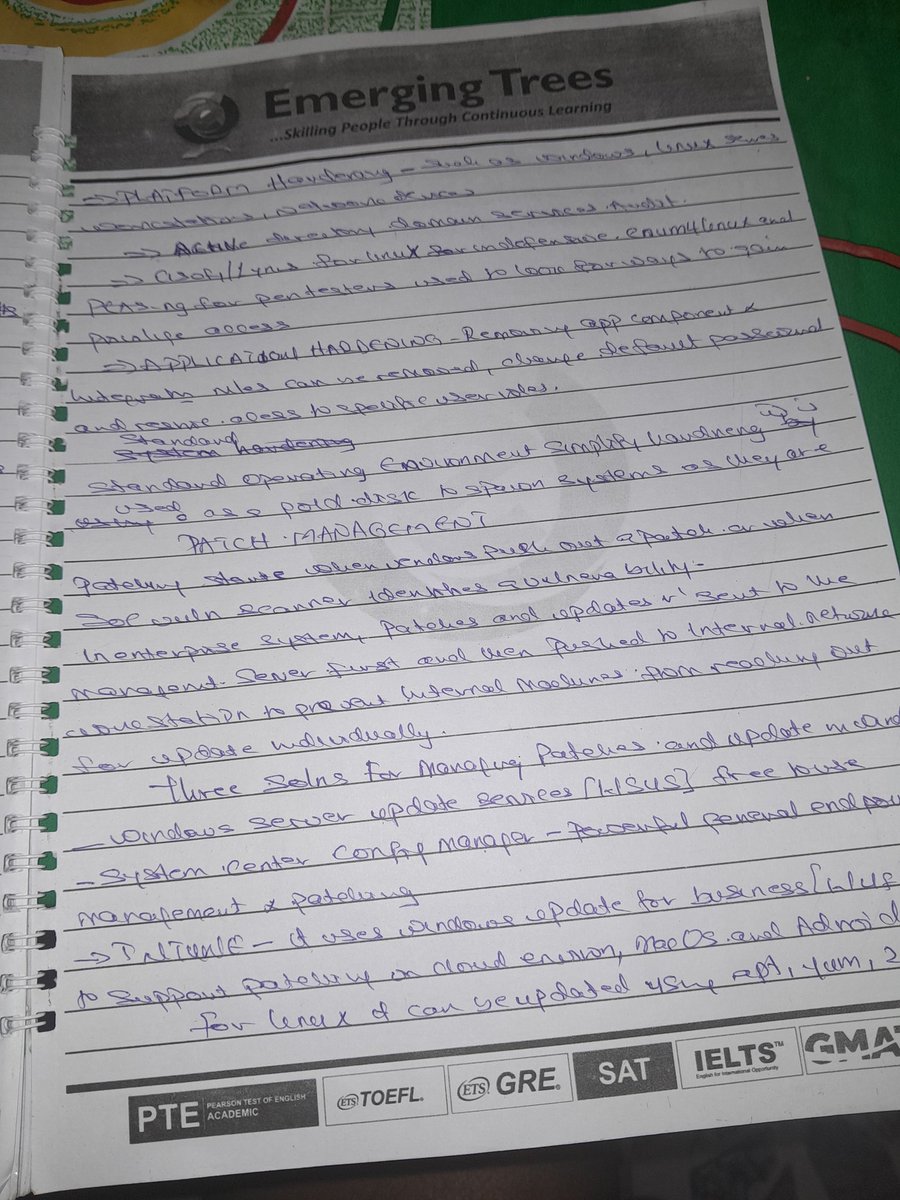 Emerging Trees
...Skilling People Through Continuous Learning
→ PLATFORM Hardening - such as windows, linux
workstations, network devices
→ Active directory domain services Audit.
→ for linux for indefensive. enum4linux and
for pentesters used to look for ways to gain
access
→ APPLICATION HARDENING - Removing app component &
rules can be removed, change default password
and access to specific user roles.
Standard
System hardening
Standard operating Environment simplify hardneng
used as a gold disk to spawn systems as they are
PATCH MANAGEMENT
patching when vendors push out a patch or when
vuln scanner identifies a vulnerability.
In enterprise system, patches and updates r' sent to the
Server first and then pushed to internal network
to prevent internal machines from reaching out
for update individually.
three solns for managing patches and update
- windows server update services [WSUS] free to use
- System center config manager - Powerful general
management & patching
→ - it uses windows update for business [
to support patching in cloud MacOS and
for linux it can be updated using apt, yum,
PTE PEARSON TEST OF ENGLISH
ACADEMIC
ETS TOEFL.
ETS GRE®
SAT
IELTS™
English for International Opportunity
GMA